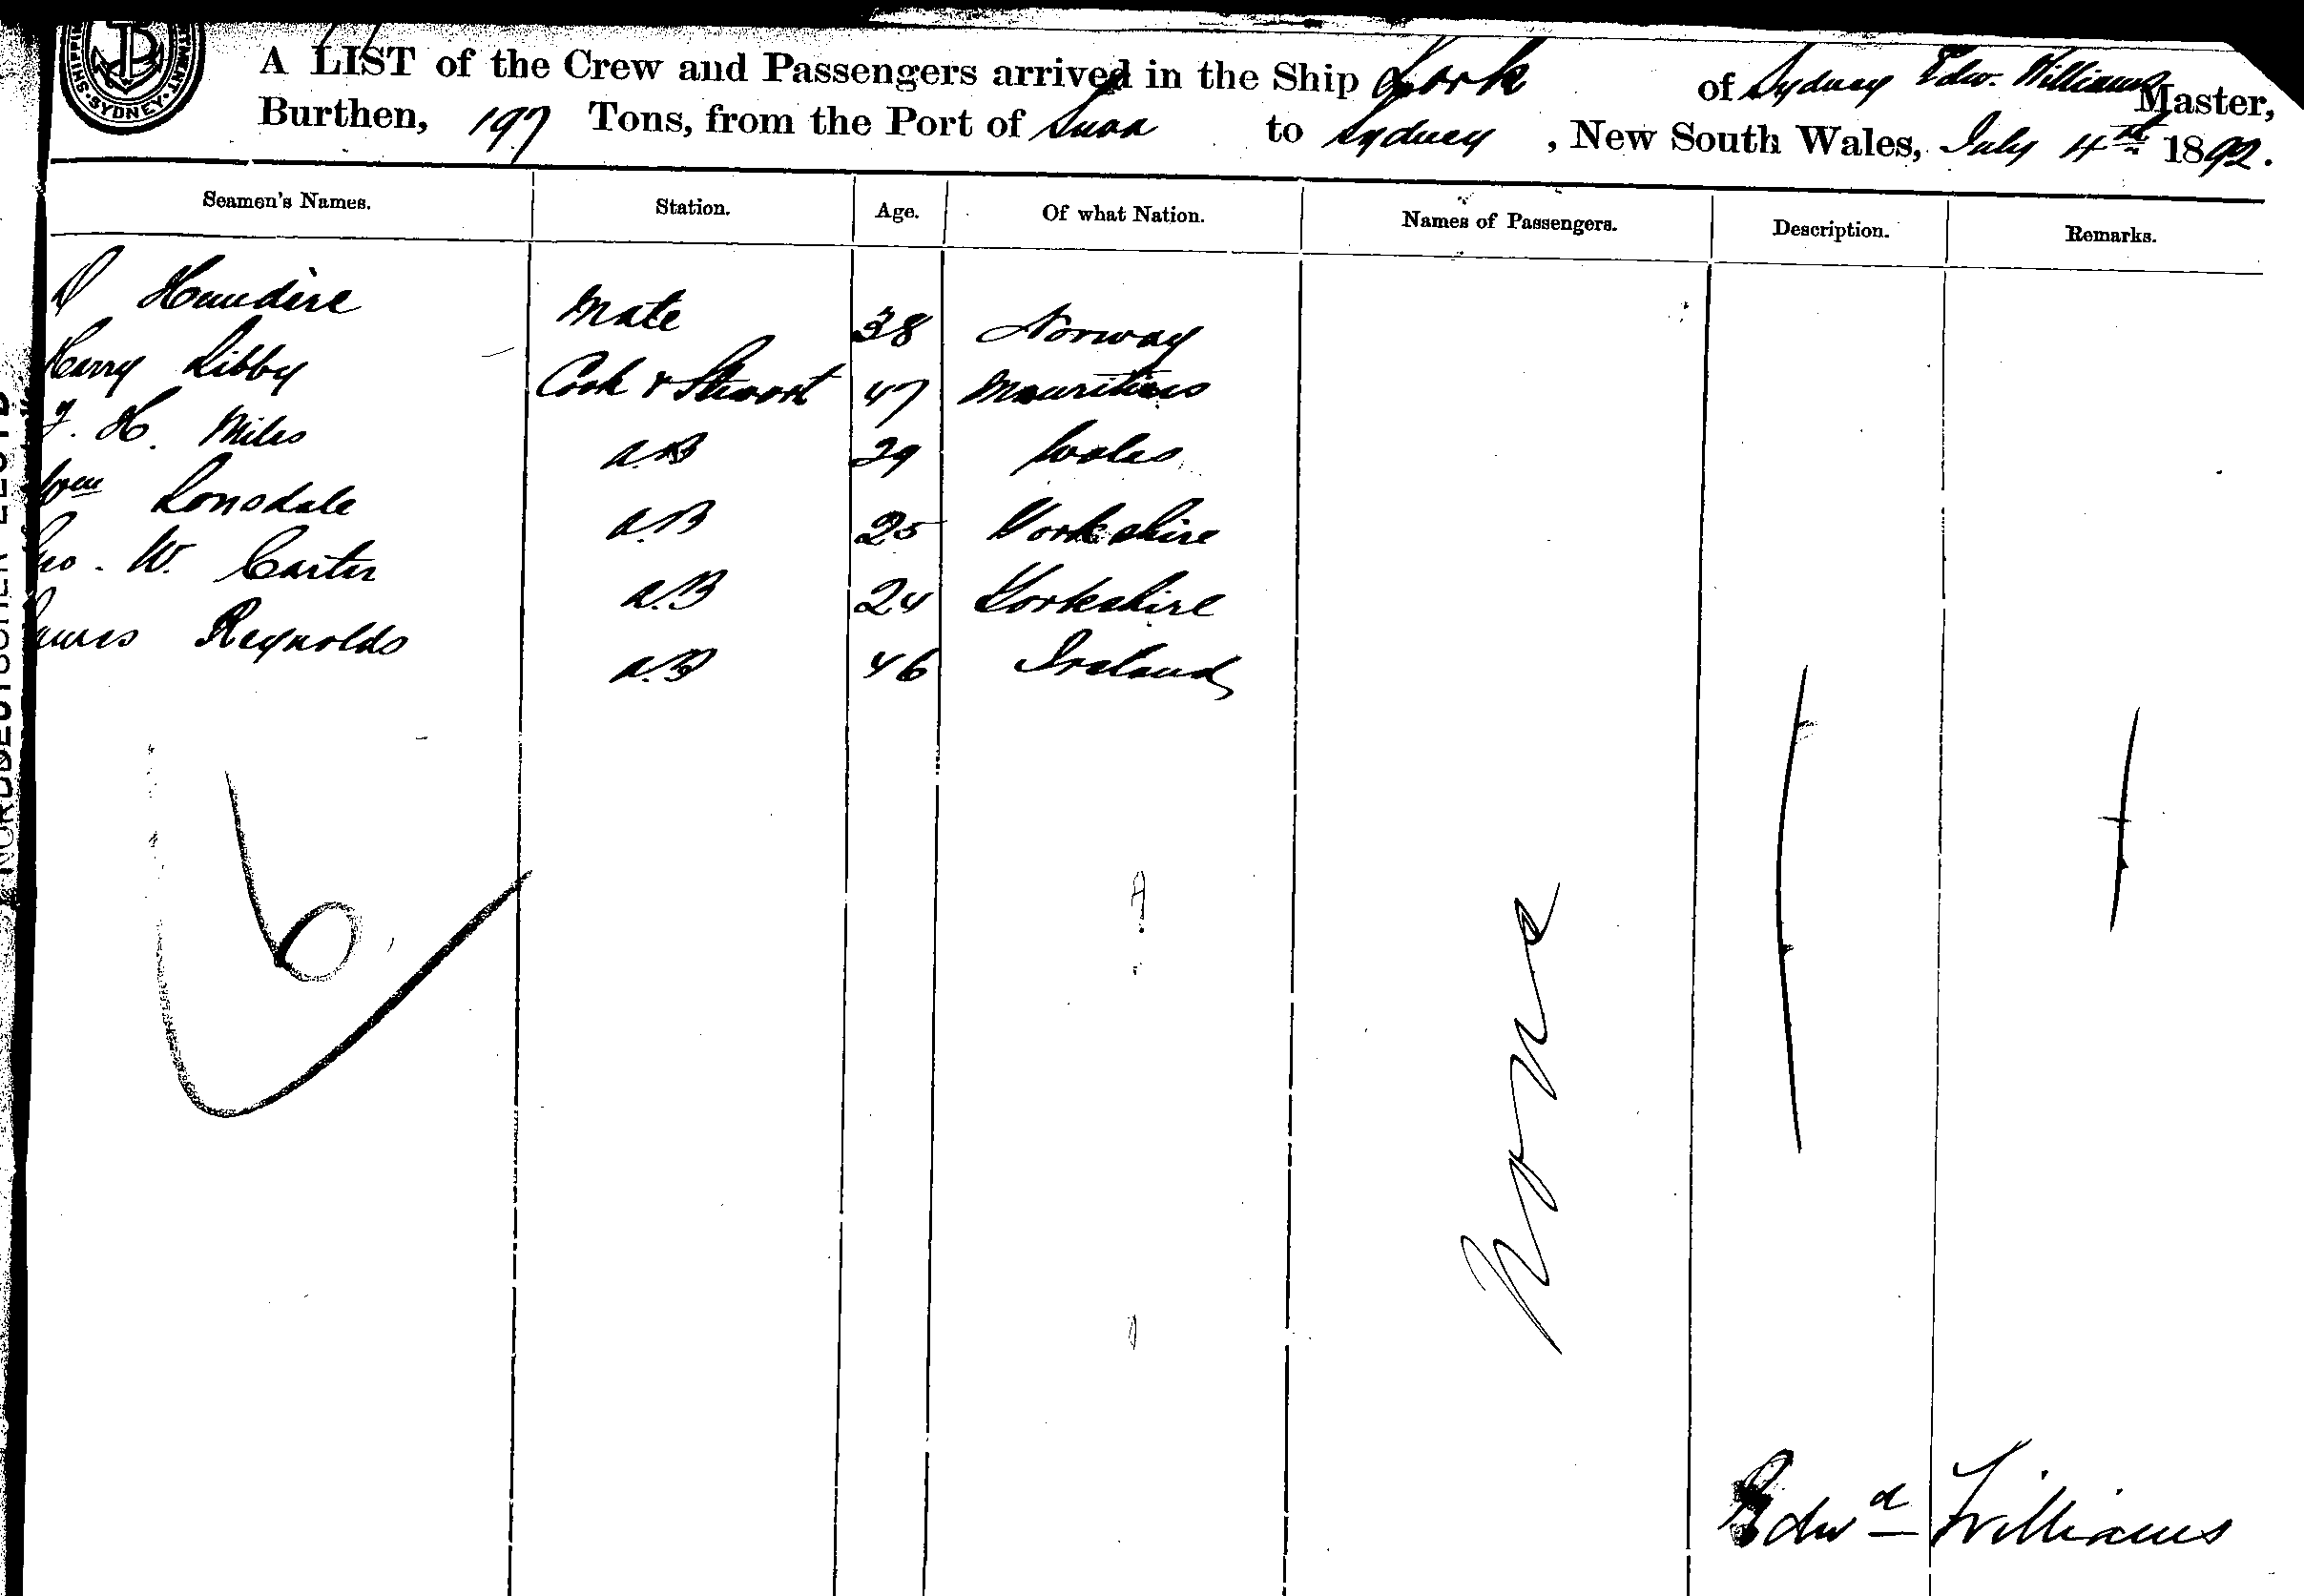 SYDNEY
A LIST of the Crew and Passengers arrived in the Ship York of Sydney Edw. Williams Master,
Burthen, 197 Tons, from the Port of Suva to Sydney, New South Wales, July 4th 1892.
Seamen's Names. Station. Age. Of what Nation. Names of Passengers. Description. Remarks.
Mate 38 Norway
Harry Libby Cook & Stewart 47 Mauritius
H. Miles A.B 29 Wales
Wm Lonsdale A.B 25 Yorkshire
W. Carter A.B 24 Yorkshire
James Reynolds A.B 46 Ireland
6
None
Edwd Williams